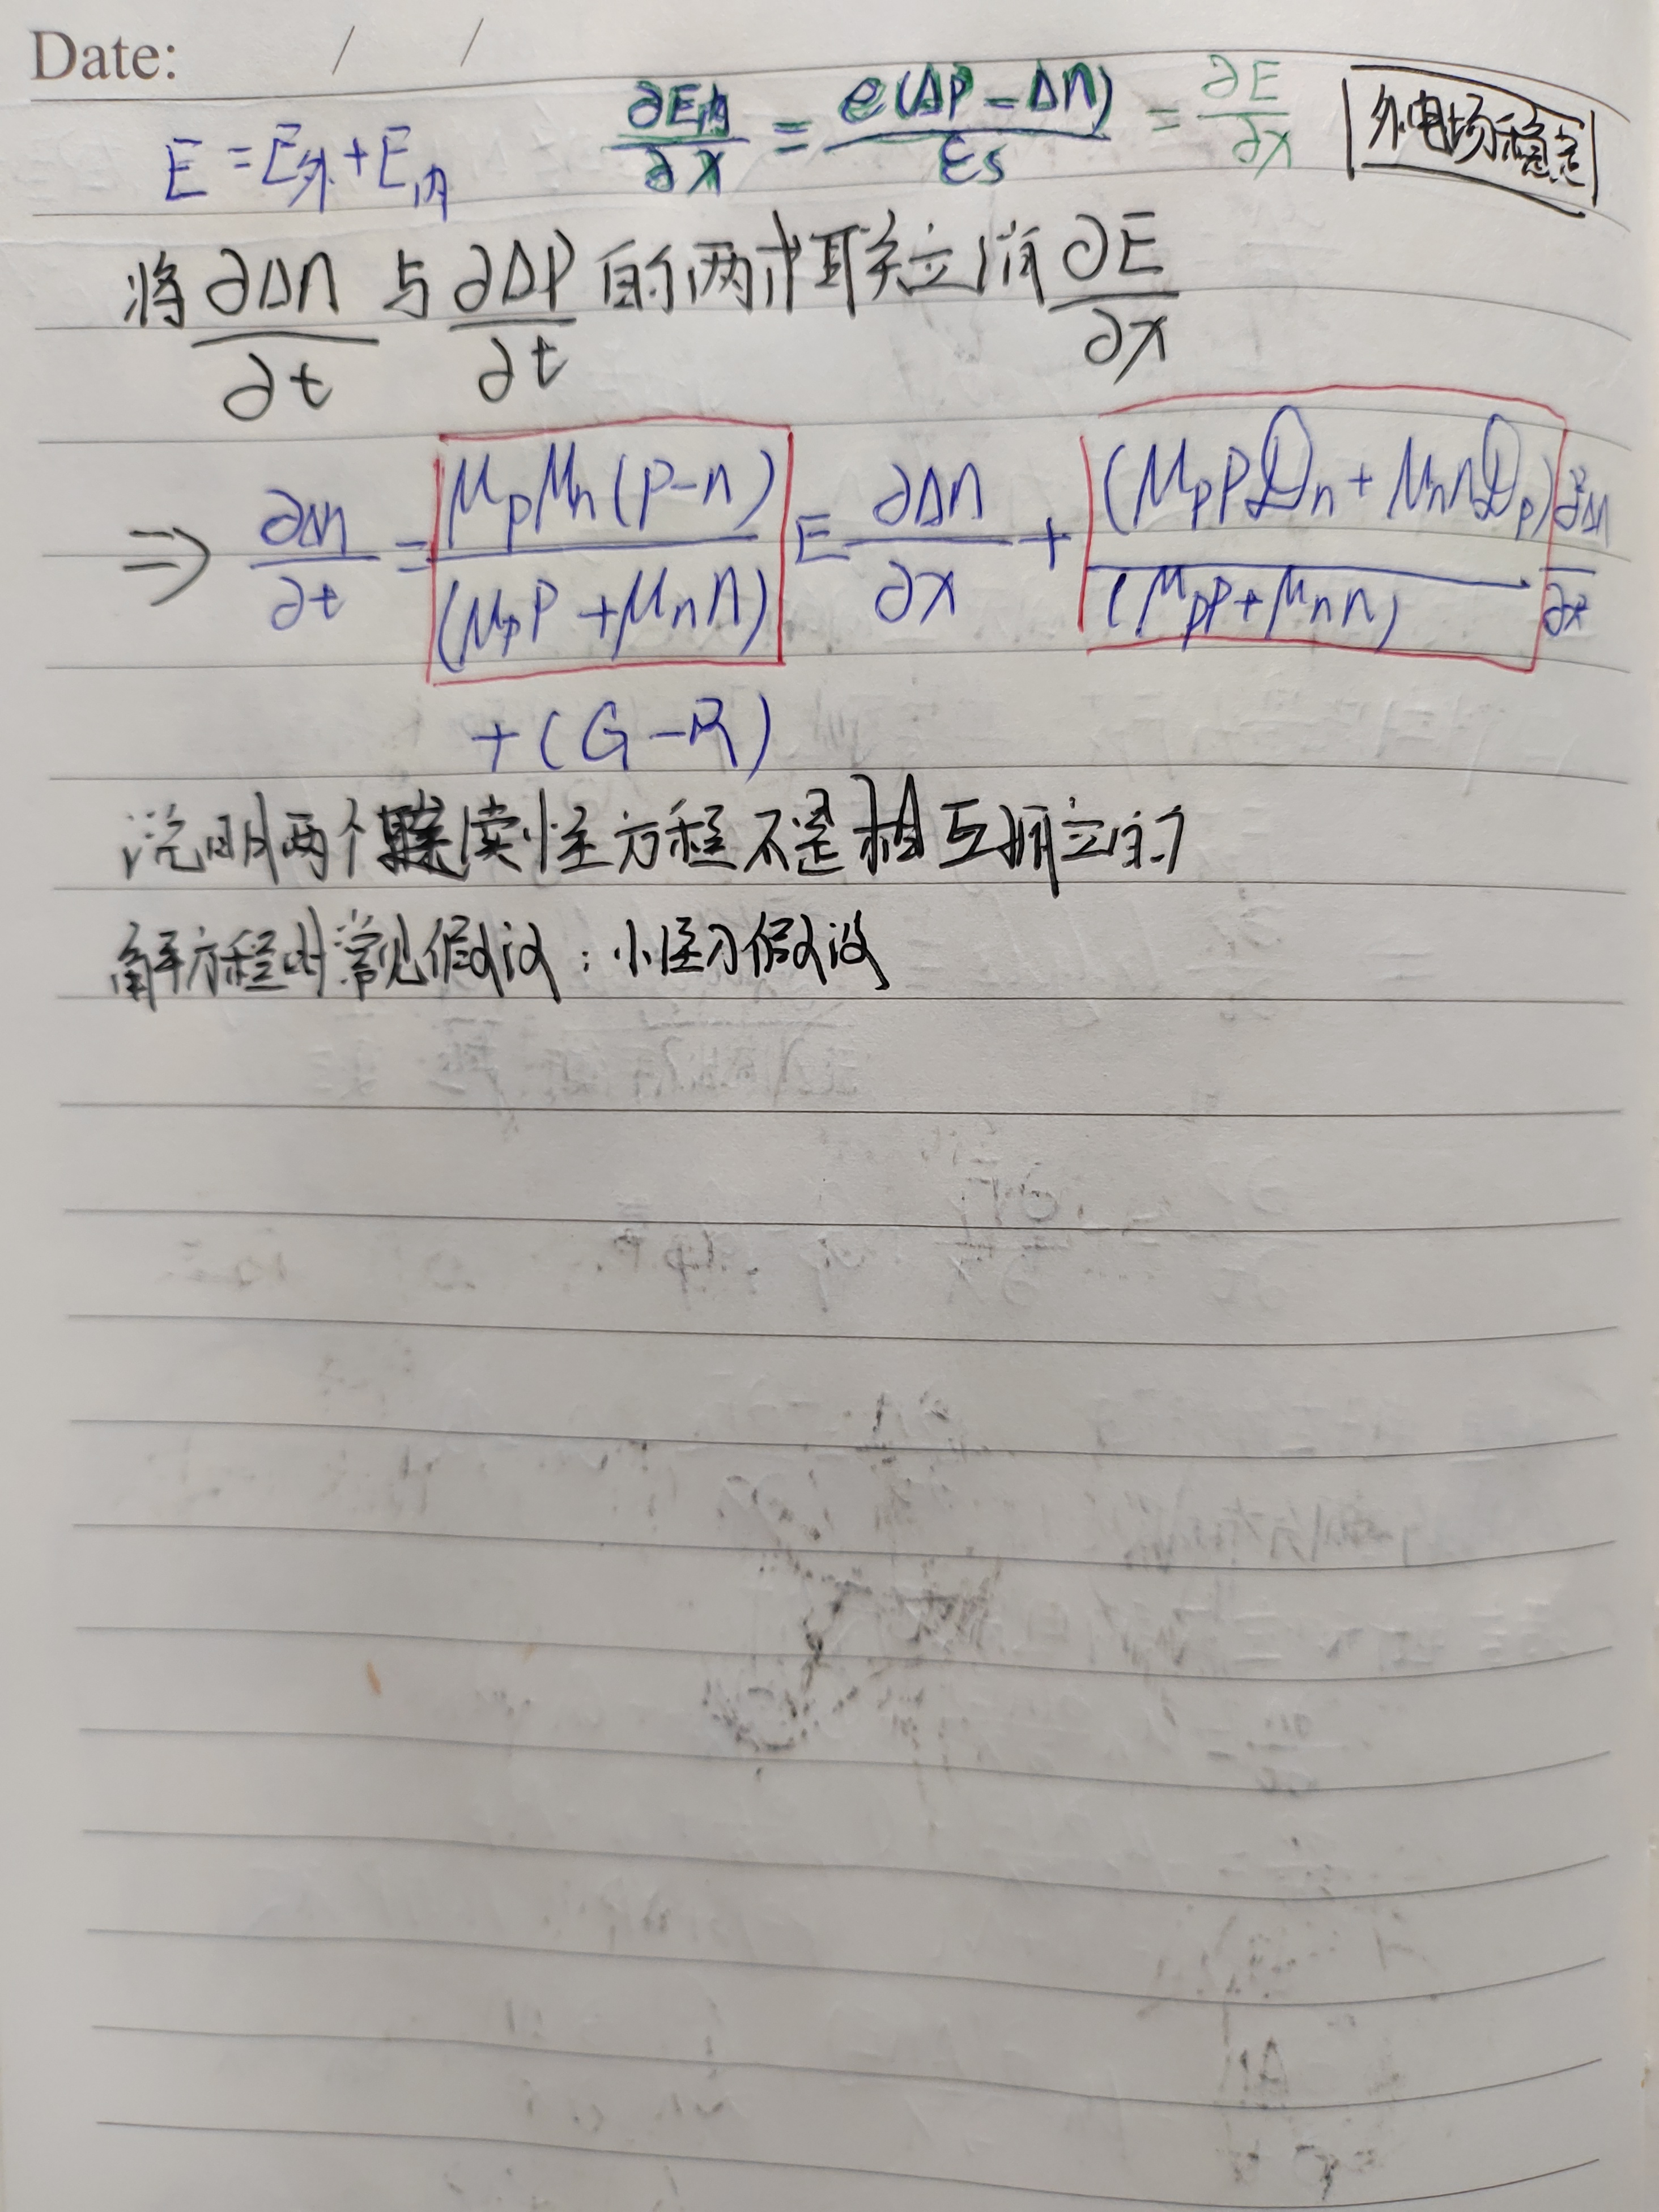 Date: / /
E = E外 + E内 ∂E内/∂x = e(Δp - Δn)/εs = ∂E/∂x 外电场稳定
将 ∂Δn/∂t 与 ∂Δp/∂t 的两式联立消 ∂E/∂x
⇒ ∂Δn/∂t = μpμn(p-n)/(μpp + μnn) E ∂Δn/∂x + (μppDn + μnnDp)/(μpp + μnn) ∂²Δn/∂x²
+ (G - R)
说明两个连续性方程不是相互独立的
解方程时常见假设：小注入假设